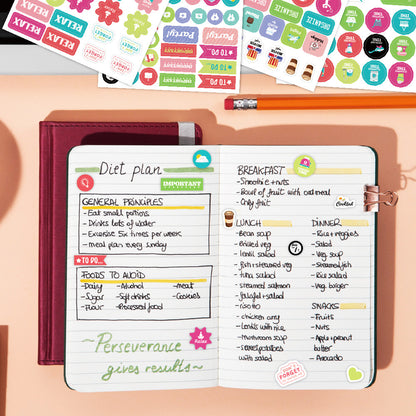 RELAX
RELAX
RELAX
RELAX
Party!
Party!
IMPORTANT
IMPORTANT
TO DO
ORGANIZE
ORGANIZE
Diet plan
IMPORTANT
GENERAL PRINCIPLES
- Eat small portions
- Drinks lots of water
- Excersise six times per week
- meal plan every sunday
TO DO
FOODS TO AVOID
- Dairy
- Alcohol
- meat
- Sugar
- Soft drinks
- Cookies
- Flour
- Processed food
~Perseverance
gives results~
Relax
BREAKFAST
- Smoothie + nuts
- Bowl of fruit with oatmeal
- Only fruit
LUNCH
- Bean soup
- Grilled veg
- lentil salad
- fish + steamed veg
- tuna salad
- steamed salmon
- falafel + salad
- risotto
- chicken curry
- Lentils with rice
- mushroom soup
- sweet potatoes
with salad
DINNER
- Rice + veggies
- Salad
- Veg soup
- Steamed fish
- Rice salad
- Veg burger
SNACKS
- Fruits
- Nuts
- Apple + peanut
butter
- Avocado
FORGET